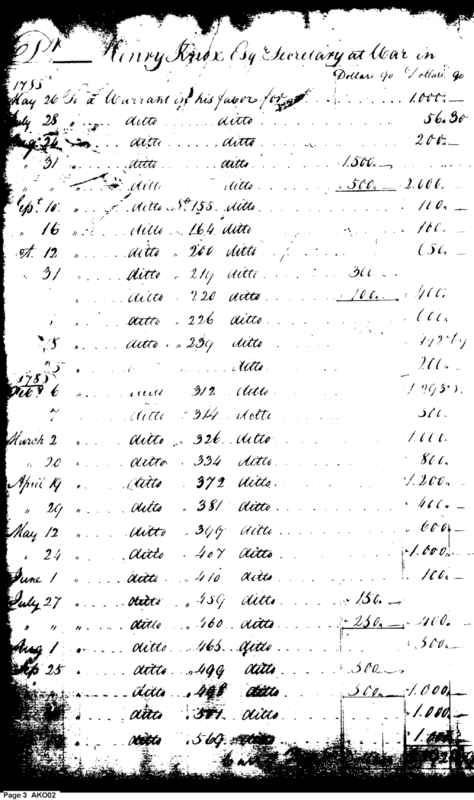 Dr Henry Knox Esq Secretary at War in
Dollars 90 Dollars 90
1785
May 26 To a Warrant in his favor for 1.000.
July 28 " ditto ditto 56.30
Augt 24 " ditto ditto 200.
" 31 " ditto ditto 1.500.
" " ditto ditto 500. 2.000.
Sept. 10 " ditto No 155 ditto 100.
" 16 " ditto " 164 ditto 100.
12 " ditto " 200 ditto 650.
" 31 " ditto " 219 ditto 300
" ditto " 220 ditto 100. 400.
" ditto " 226 ditto
8 " ditto " 239 ditto
25 ditto 200.
6 " 312 ditto
7 " ditto " 314 ditto 500.
March 2 " ditto " 326 ditto 1.000.
" 20 " ditto " 334 ditto 800.
April 19 " ditto " 372 ditto 1.200.
" 29 " ditto " 381 ditto 400.
May 12 " ditto " 399 ditto 600.
" 24 " ditto " 407 ditto 1.000.
June 1 " ditto " 410 ditto 100.
July 27 " ditto " 459 ditto 150.
" " " ditto " 460 ditto 250. 400.
Aug 1 " ditto " 465 ditto 500.
Sep 25 " ditto " 499 ditto 500.
" ditto " 498 ditto 500. 1.000.
ditto " 501 ditto 1.000.
ditto " 569 ditto 1.000.
Page 3 AKO02